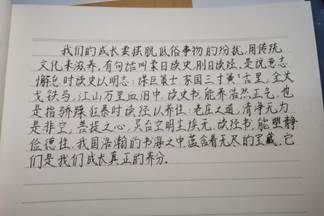 我们的成长要摆脱低俗事物的纷扰，用传统
文化来滋养。有句话叫柔日读史，刚日读经。是说意志
懈怠时读史以明志：孤臣义士，家国三寸黄土里，金戈
铁马，江山万里血泪中，读史书，能养浩然正气。也
是指骄躁狂暴时读经以养性：老庄之道，清净无为
是非空，菩提之心，灵台空明尘埃无，读经书，能塑静
俭德性。我国浩瀚的书海之中，蕴含着无尽的宝藏。它
们是我们成长真正的养分。